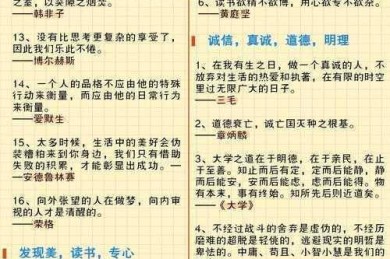 室，以突隙之烟焚。
——韩非子
13、没有比思考更复杂的享受了，
因此我们乐此不倦。
——博尔赫斯
14、一个人的品格不应由他的特殊
行动来衡量，而应由他的日常行为
来衡量。
——爱默生
15、太多时候，生活中的美好会伪
装糟粕来到你身边，我们只有借助
失败的积累，才能彰显出成功。
——安德鲁林赛
16、向外张望的人在做梦，向内审
视的人才是清醒的。
——荣格
发现美，读书，专心
6、读书欲精不欲博，用心欲专不欲杂。
——黄庭坚
诚信，真诚，道德，明理
1、在我有生之日，做一个真诚的人，不
放弃对生活的热爱和执著，在有限的时空
里过无限广大的日子。
——三毛
2、道德衰亡，诚亡国灭种之根基。
——章炳麟
3、大学之道在于明德，在于亲民，在止
于至善。知止而后有定，定而后能静，静
而后能安，安而后能虑，虑而后能得。物
有本末，事有终始。知所先后则近道矣。
——《大学》
4、不经过战斗的舍弃是虚伪的，不经历
磨难的超脱是轻佻的，逃避现实的明哲是
卑怯的。中庸、苟且、小智小慧是我们的